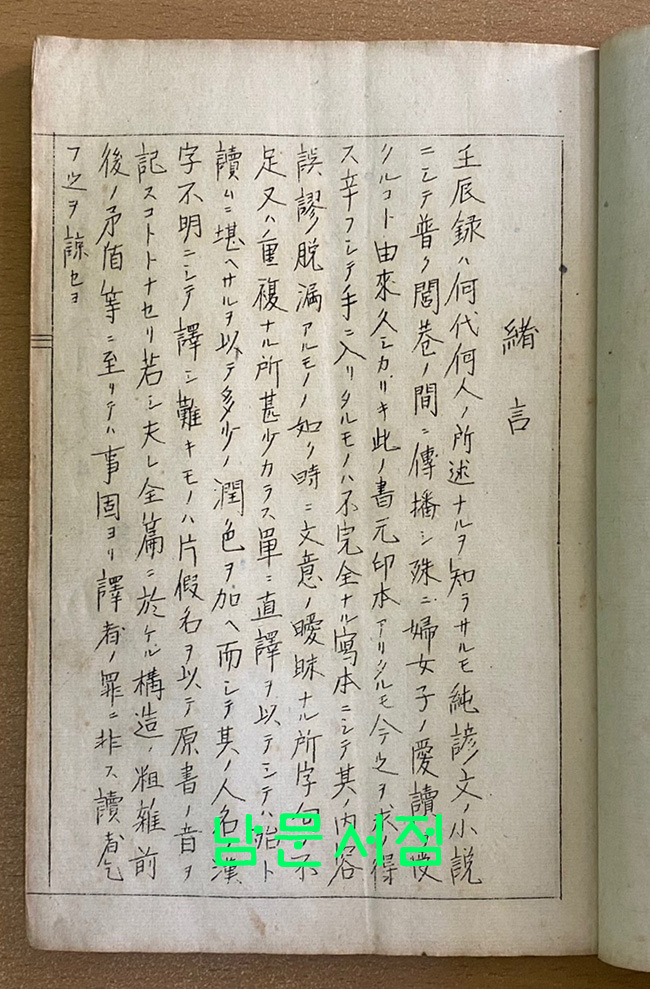 緒言
壬辰録ハ何代何人ノ所述ナルヲ知ラサルモ純諺文ノ小説
ニシテ普ク閭巷ノ間ニ傳播シ殊ニ婦女子ノ愛讀ヲ受
クルコト由來久シカリキ此ノ書元印本アリタルモ今之ヲ求メ得
ス辛フシテ手ニ入リタルモノハ不完全ナル寫本ニシテ其ノ内容
誤謬脱漏アルモノノ如ク時ニ文意ノ曖昧ナル所字句ノ不
足又ハ重複ナル所甚少カラス單ニ直譯ヲ以テシテハ殆ト
讀ムニ堪ヘサルヲ以テ多少ノ潤色ヲ加ヘ而シテ其ノ人名ノ漢
字不明ニシテ譯シ難キモノハ片假名ヲ以テ原書ノ音ヲ
記スコトトナセリ若シ夫レ全篇ニ於ケル構造ノ粗雜前
後ノ矛盾等ニ至リテハ事固ヨリ譯者ノ罪ニ非ス讀者乞
フ之ヲ諒セヨ
남문서점